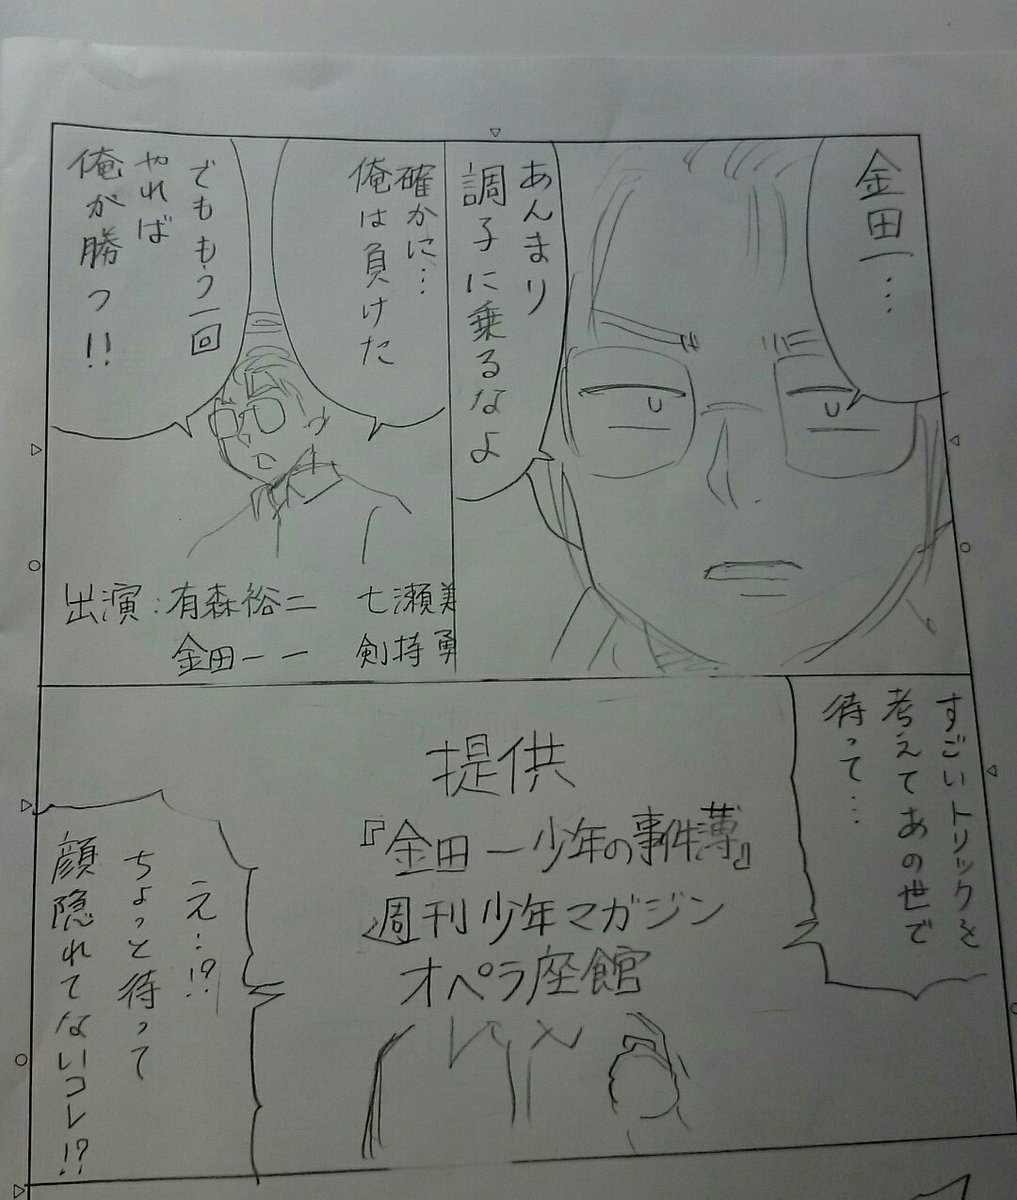 金田一…
あんまり
調子に乗るなよ
確かに…
俺は負けた
でももう一回
やれば
俺が勝つ!!
出演:有森裕二 七瀬美
金田一一 剣持勇
すごいトリックを
考えてあの世で
待って…
提供
『金田一少年の事件薄』
週刊少年マガジン
オペラ座館
え…!?
ちょっと待って
顔隠れてないコレ!?